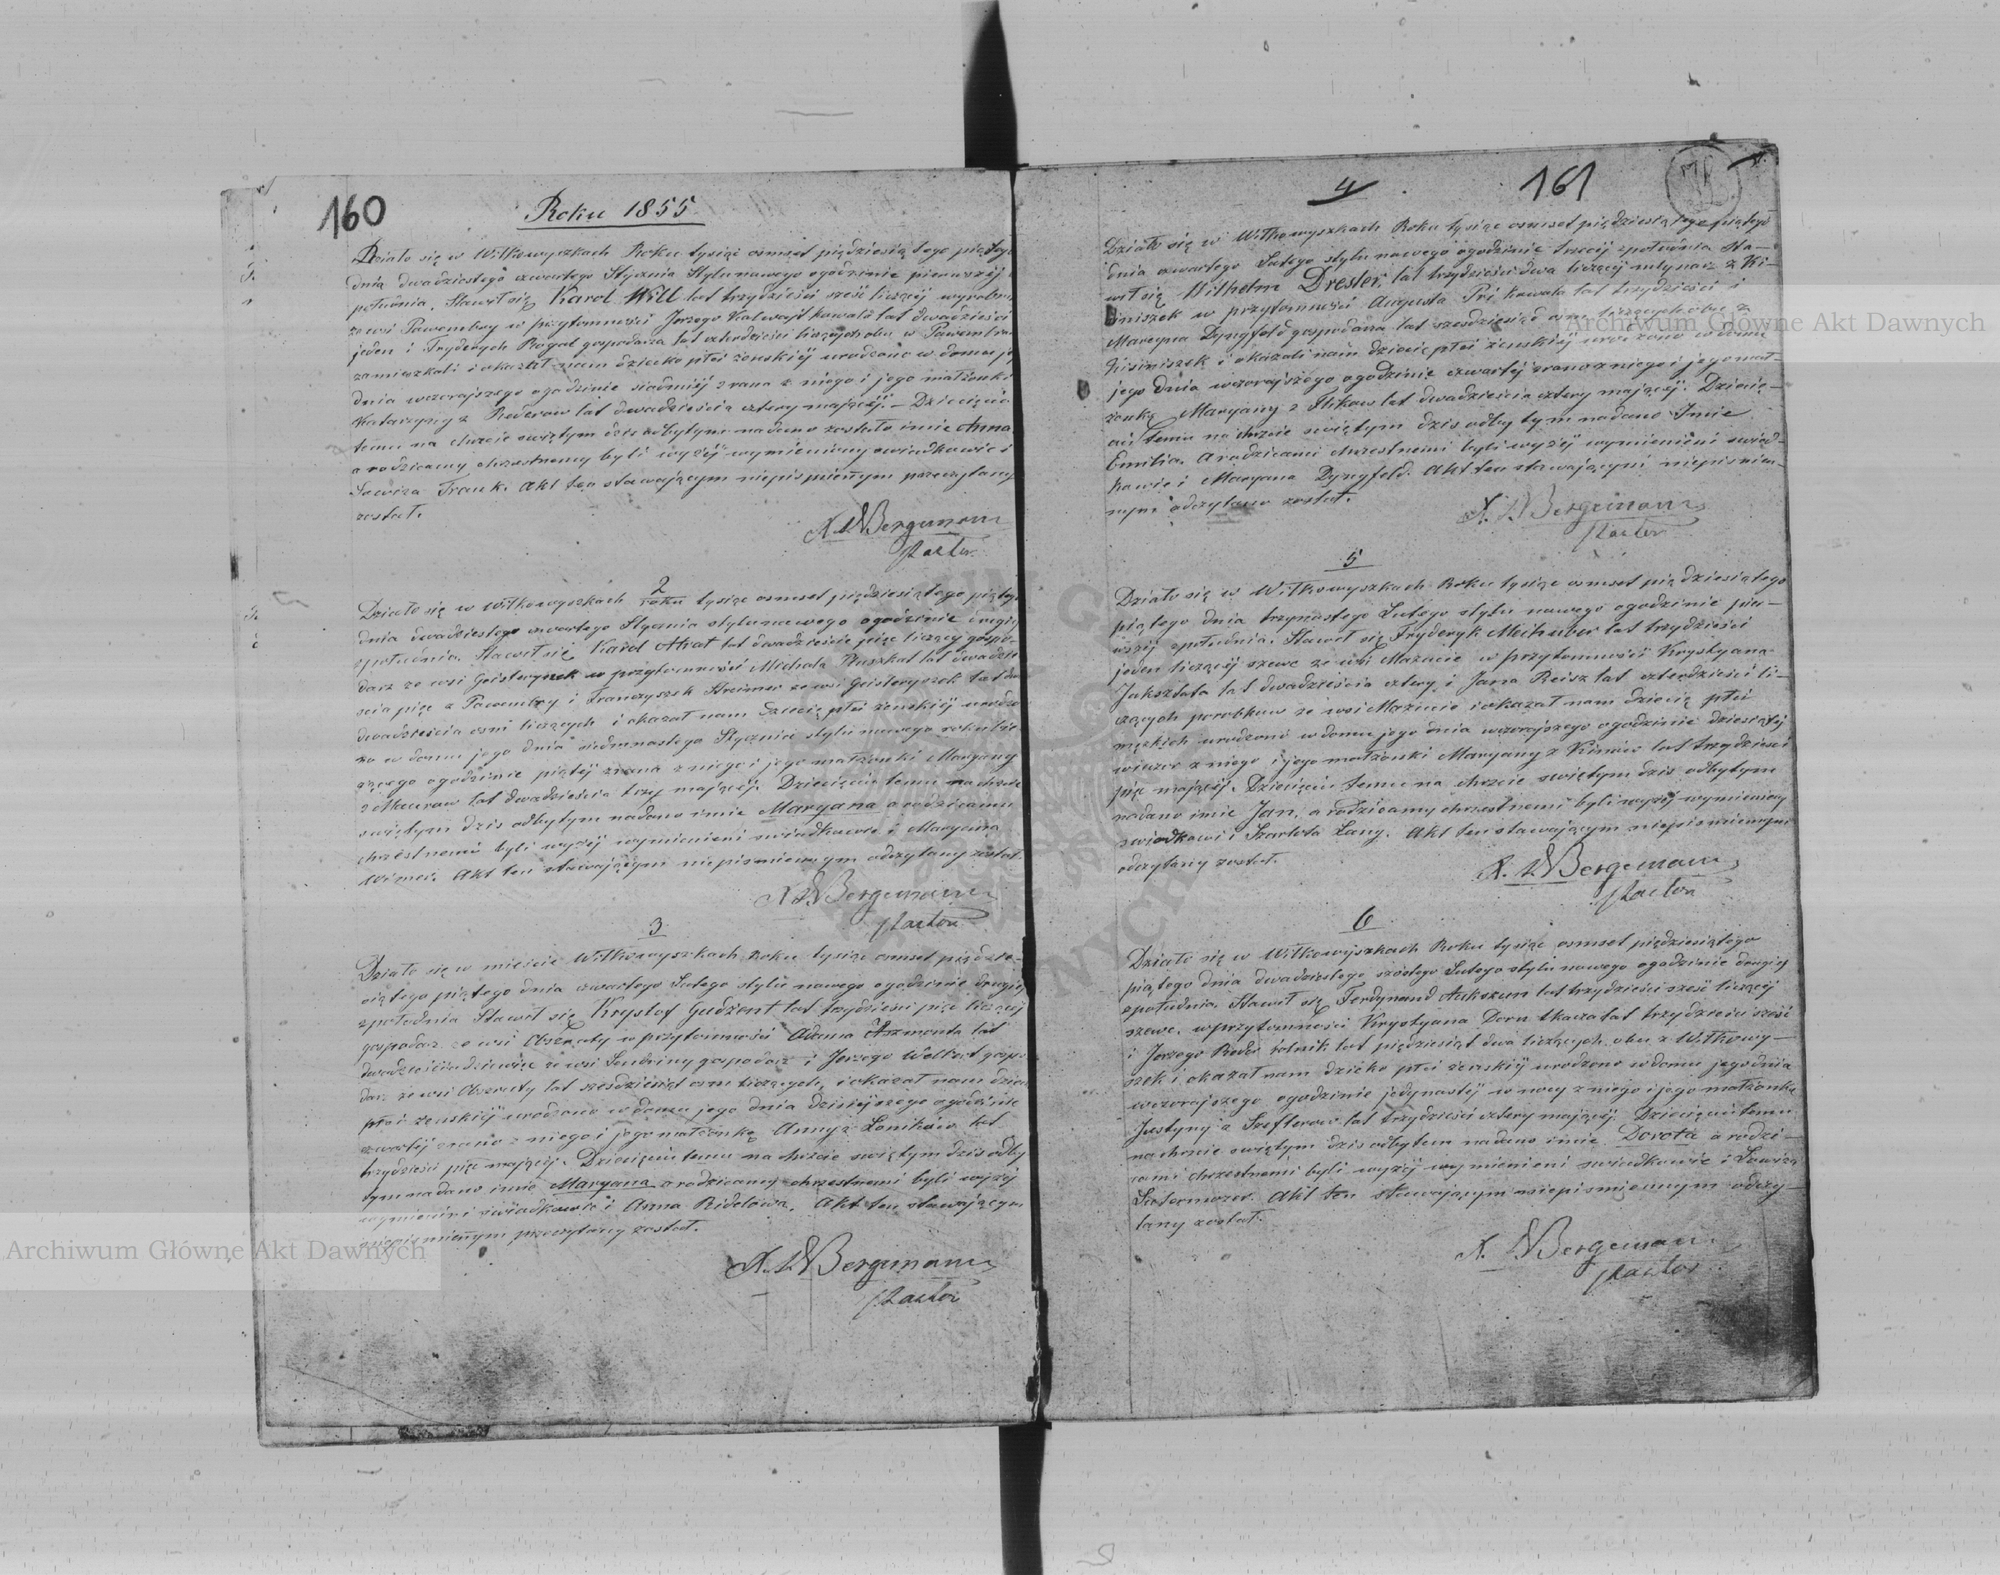 160
Roku 1855
Działo się w Wiłkowyszkach Roku tysiąc osmset piędziesiątego piątego
dnia dwudziestego czwartego Stycznia Stylu nowego ogodzinie pierwszéj
południa. Stawił się Karol Will lat trzydzieści sześć liczący wyrobnik
ze wsi Pawembry w przytomności Jerzego Kalwajt kowala lat dwadzieścia
jeden i Frydrych Rogal gospodarza lat czterdzieści liczących obu w Pawembrach
zamieszkali i okazał nam dziecko płci żenskiéj urodzone w domu jego
dnia wczorajszego ogodzinie siódméj zrana z niego i jego małżonki
Katarzyny z Rederow lat dwadzieścia cztery mającéj. – Dziecięciu
temu na chrzcie świętym dzis odbytym nadane zostało imie Anna
a rodzicamy chrzestnemy byli wyżéj wymieniony swiadkowie i
Lowiza Frank. Akt ten stawającym niepiśmiennym przeczytany
został.
A. W Bergemann
Pastor
2
Działo się w Wiłkowyszkach roku tysiąc osmset piędziesiątego piątego
dnia dwudziestego czwartego Stycznia stylu nowego ogodzinie drugiéj
społudnia. Stawił się Karol Abrat lat dwadzieścia pięć liczący gospo-
darz ze wsi Geisteryszek w przytomności Michała Puszkat lat dwadzie
scia pięc z Pawembry i Franczyszek Streimer ze wsi Geisteryszek lat
dwadzieścia osm liczących i okazał nam Dziecię płci żenskiéj urodzo
no w domu jego dnia siedmnastego Stycznia stylu nowego roku bie
żącego ogodzinie piątéj zrana z niego i jego małżonki Maryany
z Mauraw lat dwadzieścia trzy mającéj. Dziecięciu temu na chrzcie
swiętym dzis odbytym nadano imie Maryana a rodzicamy
chrzestnemi byli wyżéj wymienieni swiadkowie i Maryana
Wimer. Akt ten stawającym niepismiennym odczytany został.
A W. Bergemann
Pastor
3
Działo się w mieście Wiłkowyszkach roku tysiąc osmset piędzie-
siątego piątego dnia czwartego Lutego stylu nowego ogodzinie drugiéj
zpołudnia Stawił się Krystof Gudzent lat trzydzieści pięc liczący
gospodarz ze wsi Obszruty w przytomności Adama Aszmonta lat
dwadzieścia dziewięc ze wsi gospodarz i Jerzego Wolkat gospo
darz ze wsi Obszruty lat szesdziesiąt osm liczących, i okazał nam dziecię
płci żenskiéj urodzone w domu jego dnia dzisiéjszego ogodzinie
czwartéj zrana z niego i jego małżonkę Anny z Lonikow lat
trzydzieści pięc mającéj. Dziecięciu temu na chrzcie swiętym dzis odby
tym nadano imie Maryana a rodzicamy chrzestnemi byli wyżéj
wymienieni swiadkowie i Anna Ridelowa. Akt ten stawającym
niepismiennym przeczytany został.
A. W Bergemann
Pastor
161
4
Działo się w Wiłkowyszkach Roku tysiąc osmset piędziesiątego piątego
dnia czwartego Lutego stylu nowego ogodzinie trzeciéj zpołudnia sta-
wił się Wilhelm Dresler, lat trzydzieści dwa liczący młynarz z Ki-
siniszek w przytomności Augusta Pri kowala lat trzydzieści i
Maregna Dyngfeld gospodarza lat szesdziesiąt osm liczących obu z
Kisiniszek i okazali nam dziecię płci żenskiéj urodzone w domu
jego dnia wczorajszego ogodzinie czwartéj zrana z niego i jego mał-
żonkę Maryany z Flikow lat dwadzieścia cztery mającéj. Dziecię-
ciu temu na chrzcie swiętym dzis odbytym nadano Imie
Emilia. A rodzicami chrzestnemi byli wyżéj wymienieni swiad-
kowie i Maryana Dyngfeld. Akt ten stawającymi niepismien-
nymi odczytano został.
A. W Bergemann
Pastor
5
Działo się w Wiłkowyszkach Roku tysiąc osmset piędziesiątego
piątego dnia trzynastego Lutego stylu nowego ogodzinie pier-
wszéj zpołudnia. Stawił się Fryderyk Meihuwer lat trzydzieści
jeden liczący szewc ze wsi Mazucie w przytomności Krystyana
Jaksztata lat dwadzieścia cztery i Jana Reisz lat czterdzieści li-
czących porobkow ze wsi Mazucie i okazał nam dziecię płci
męskich urodzone w domu jego dnia wczorajszego ogodzinie dziesiątéj
wieczor z niego i jego małżonki Maryany z Kinow lat trzydzieści
pięc mającéj. Dziecięciu temu na chrzcie swiętym dzis odbytym
nadano imie Jan, a rodzicamy chrzestnemi byli wyżéj wymieniony
swiadkowi i Szarlota Lany. Akt ten stawającym niepismiennym
odczytany został.
A. W Bergemann
Pastor
6
Działo się w Wiłkowyszkach Roku tysiąc osmset piędziesiątego
piątego dnia dwudziestego szóstego Lutego stylu nowego ogodzinie drugiéj
zpołudnia. Stawił się Ferdynand Aukszun lat trzydzieści sześć liczący
szewc, w przytomności Krystyana Dorn tkacza lat trzydzieści sześć
i Jerzego Reder rolnik lat piędziesiąt dwa liczących, obu z Wiłkowy-
szek i okazał nam dziécko płci żenskiéj urodzono w domu jego dnia
wczorajszego ogodzinie jedynastéj w nocy z niego i jego małżonkę
Justyny z Szefterow lat trzydzieści cztery mającéj Dziecięciu temu
na chrcie swiętym dzis odbytem nadano imie Dorota a rodzi-
cami chrzestnemi byli wyżéj wymienieni swiadkowie i Lowiza
Akt ten stawającym niepismiennym odczy-
tany został.
A. W Bergemann
Pastor
Archiwum Główne Akt Dawnych
Archiwum Główne Akt Dawnych